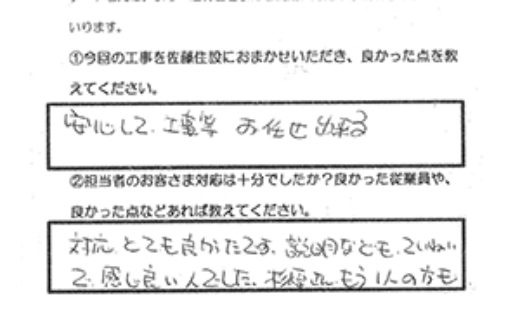 いります。
①今回の工事を佐藤住設におまかせいただき、良かった点を教
えてください。
安心して、工事等 お任せ出来る
②担当者のお客さま対応は十分でしたか？良かった従業員や、
良かった点などあれば教えてください。
対応 とても良かったです。説明なども、ていねい
で、感じ良い人でした。杉原さん もう1人の方も